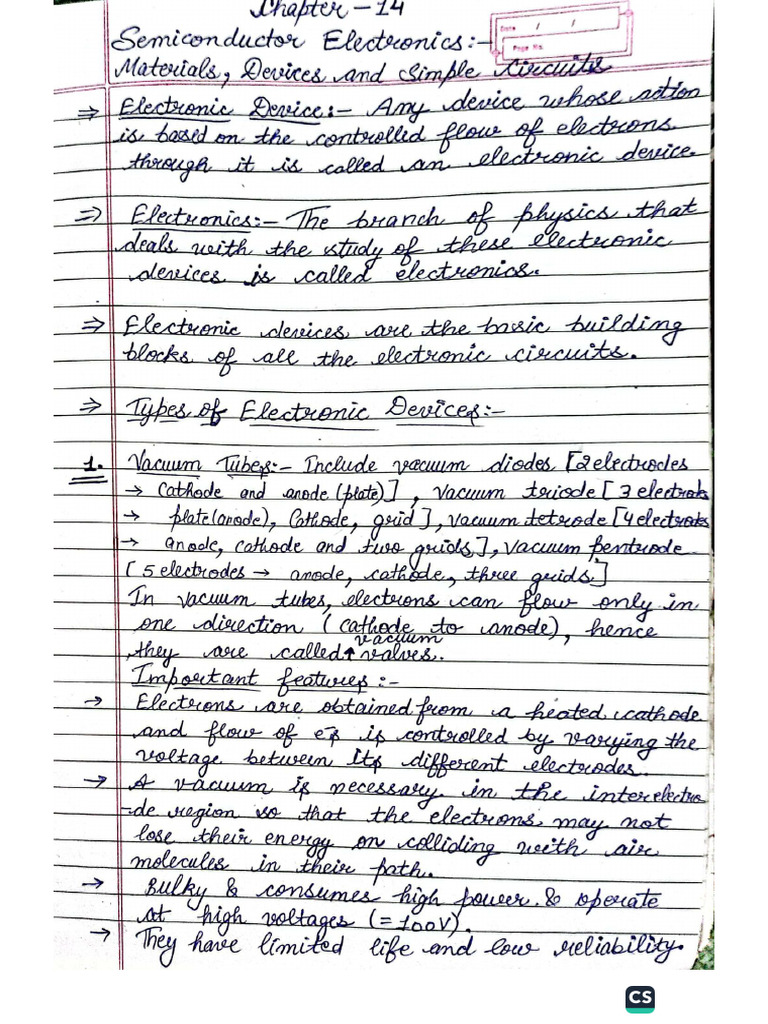 Chapter-14
Date / /
Page No.
Semiconductor Electronics:-
Materials, Devices and Simple Circuits
⇒ Electronic Device:- Any device whose action
is based on the controlled flow of electrons
through it is called an electronic device.
⇒ Electronics:- The branch of physics that
deals with the study of these electronic
devices is called electronics.
⇒ Electronic devices are the basic building
blocks of all the electronic circuits.
⇒ Types of Electronic Devices:-
1. Vacuum Tubes:- Include vacuum diodes [2 electrodes
→ Cathode and anode (plate)], Vacuum triode [3 electrods
→ plate(anode), Cathode, grid], vacuum tetrode [4 electrods
→ anode, cathode and two grids], vacuum pentrode
[5 electrodes → anode, cathode, three grids]
In vacuum tubes, electrons can flow only in
one direction (cathode to anode), hence
they are called ↑ vacuum valves.
Important features:-
→ Electrons are obtained from a heated cathode
and flow of e⁻s is controlled by varying the
voltage between its different electrodes.
→ A vacuum is necessary in the interelectro
-de region so that the electrons may not
lose their energy on colliding with air
molecules in their path.
→ Bulky & consumes high power & operate
at high voltages (=100V).
→ They have limited life and low reliability.
CS